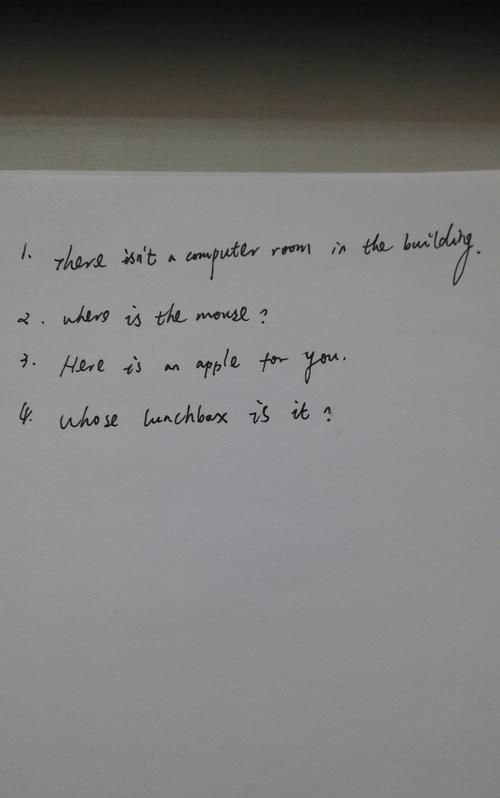 1. There isn't a computer room in the building.
2. where is the mouse?
3. Here is an apple for you.
4. whose lunchbox is it?